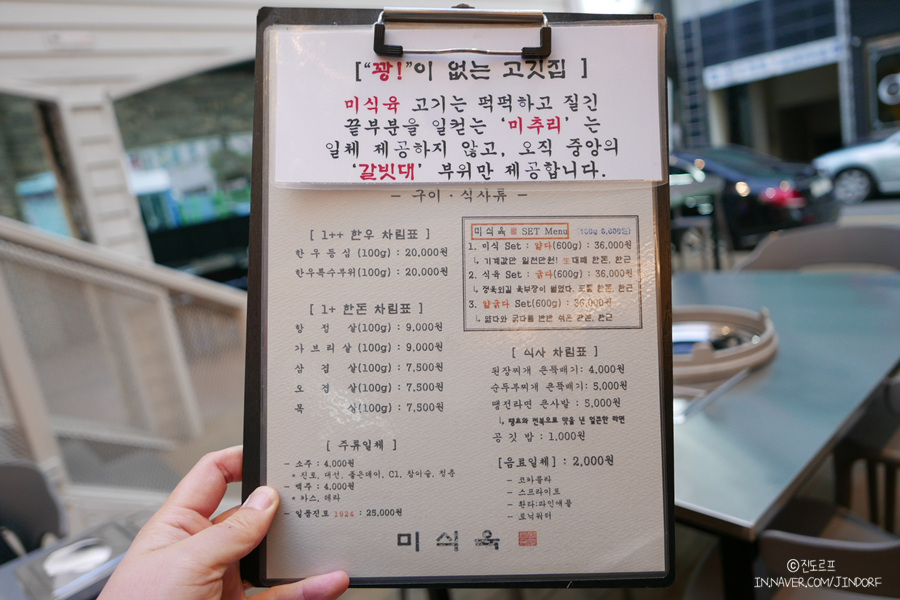 ["꽝!"이 없는 고깃집 ]
미식육 고기는 퍽퍽하고 질긴
끝부분을 일컫는 '미추리' 는
일체 제공하지 않고, 오직 중앙의
'갈빗대' 부위만 제공합니다.
- 구이 · 식사류 -
[ 1++ 한우 차림표 ]
한우등심 (100g) : 20,000원
한우특수부위(100g) : 20,000원
[ 1+ 한돈 차림표 ]
항 정 살(100g) : 9,000원
가브리살 (100g) : 9,000원
삼 겹 살(100g) : 7,500원
오 겹 살(100g) : 7,500원
목 살(100g) : 7,500원
[ 주류일체 ]
- 소주 : 4,000원
* 진로, 대선, 좋은데이, C1, 참이슬, 청춘
- 맥주 : 4,000원
* 카스, 테라
- 일품진로 1924 : 25,000원
미식육 SET Menu (100g 6,000원)
1. 미식 Set : 얇다(600g) : 36,000원
↳ 기계값만 일천만원! 生대패 한돈, 한근
2. 식육 Set : 굵다(600g) : 36,000원
↳ 정육외길 육부장이 썰었다. 한돈, 한근
3. 얇굵다 Set(600g) : 36,000원
↳ 얇다와 굵다를 반반 섞은 한돈, 한근
[ 식사 차림표 ]
된장찌개 큰뚝배기: 4,000원
순두부찌개 큰뚝배기: 5,000원
땡전라면 큰사발 : 5,000원
↳ 땡초와 전복으로 맛을 낸 얼큰한 라면
공깃밥 : 1,000원
[음료일체] : 2,000원
- 코카콜라
- 스프라이트
- 환타:파인애플
- 토닉워터
미식육
©진도르프
IN.NAVER.COM/JINDORF